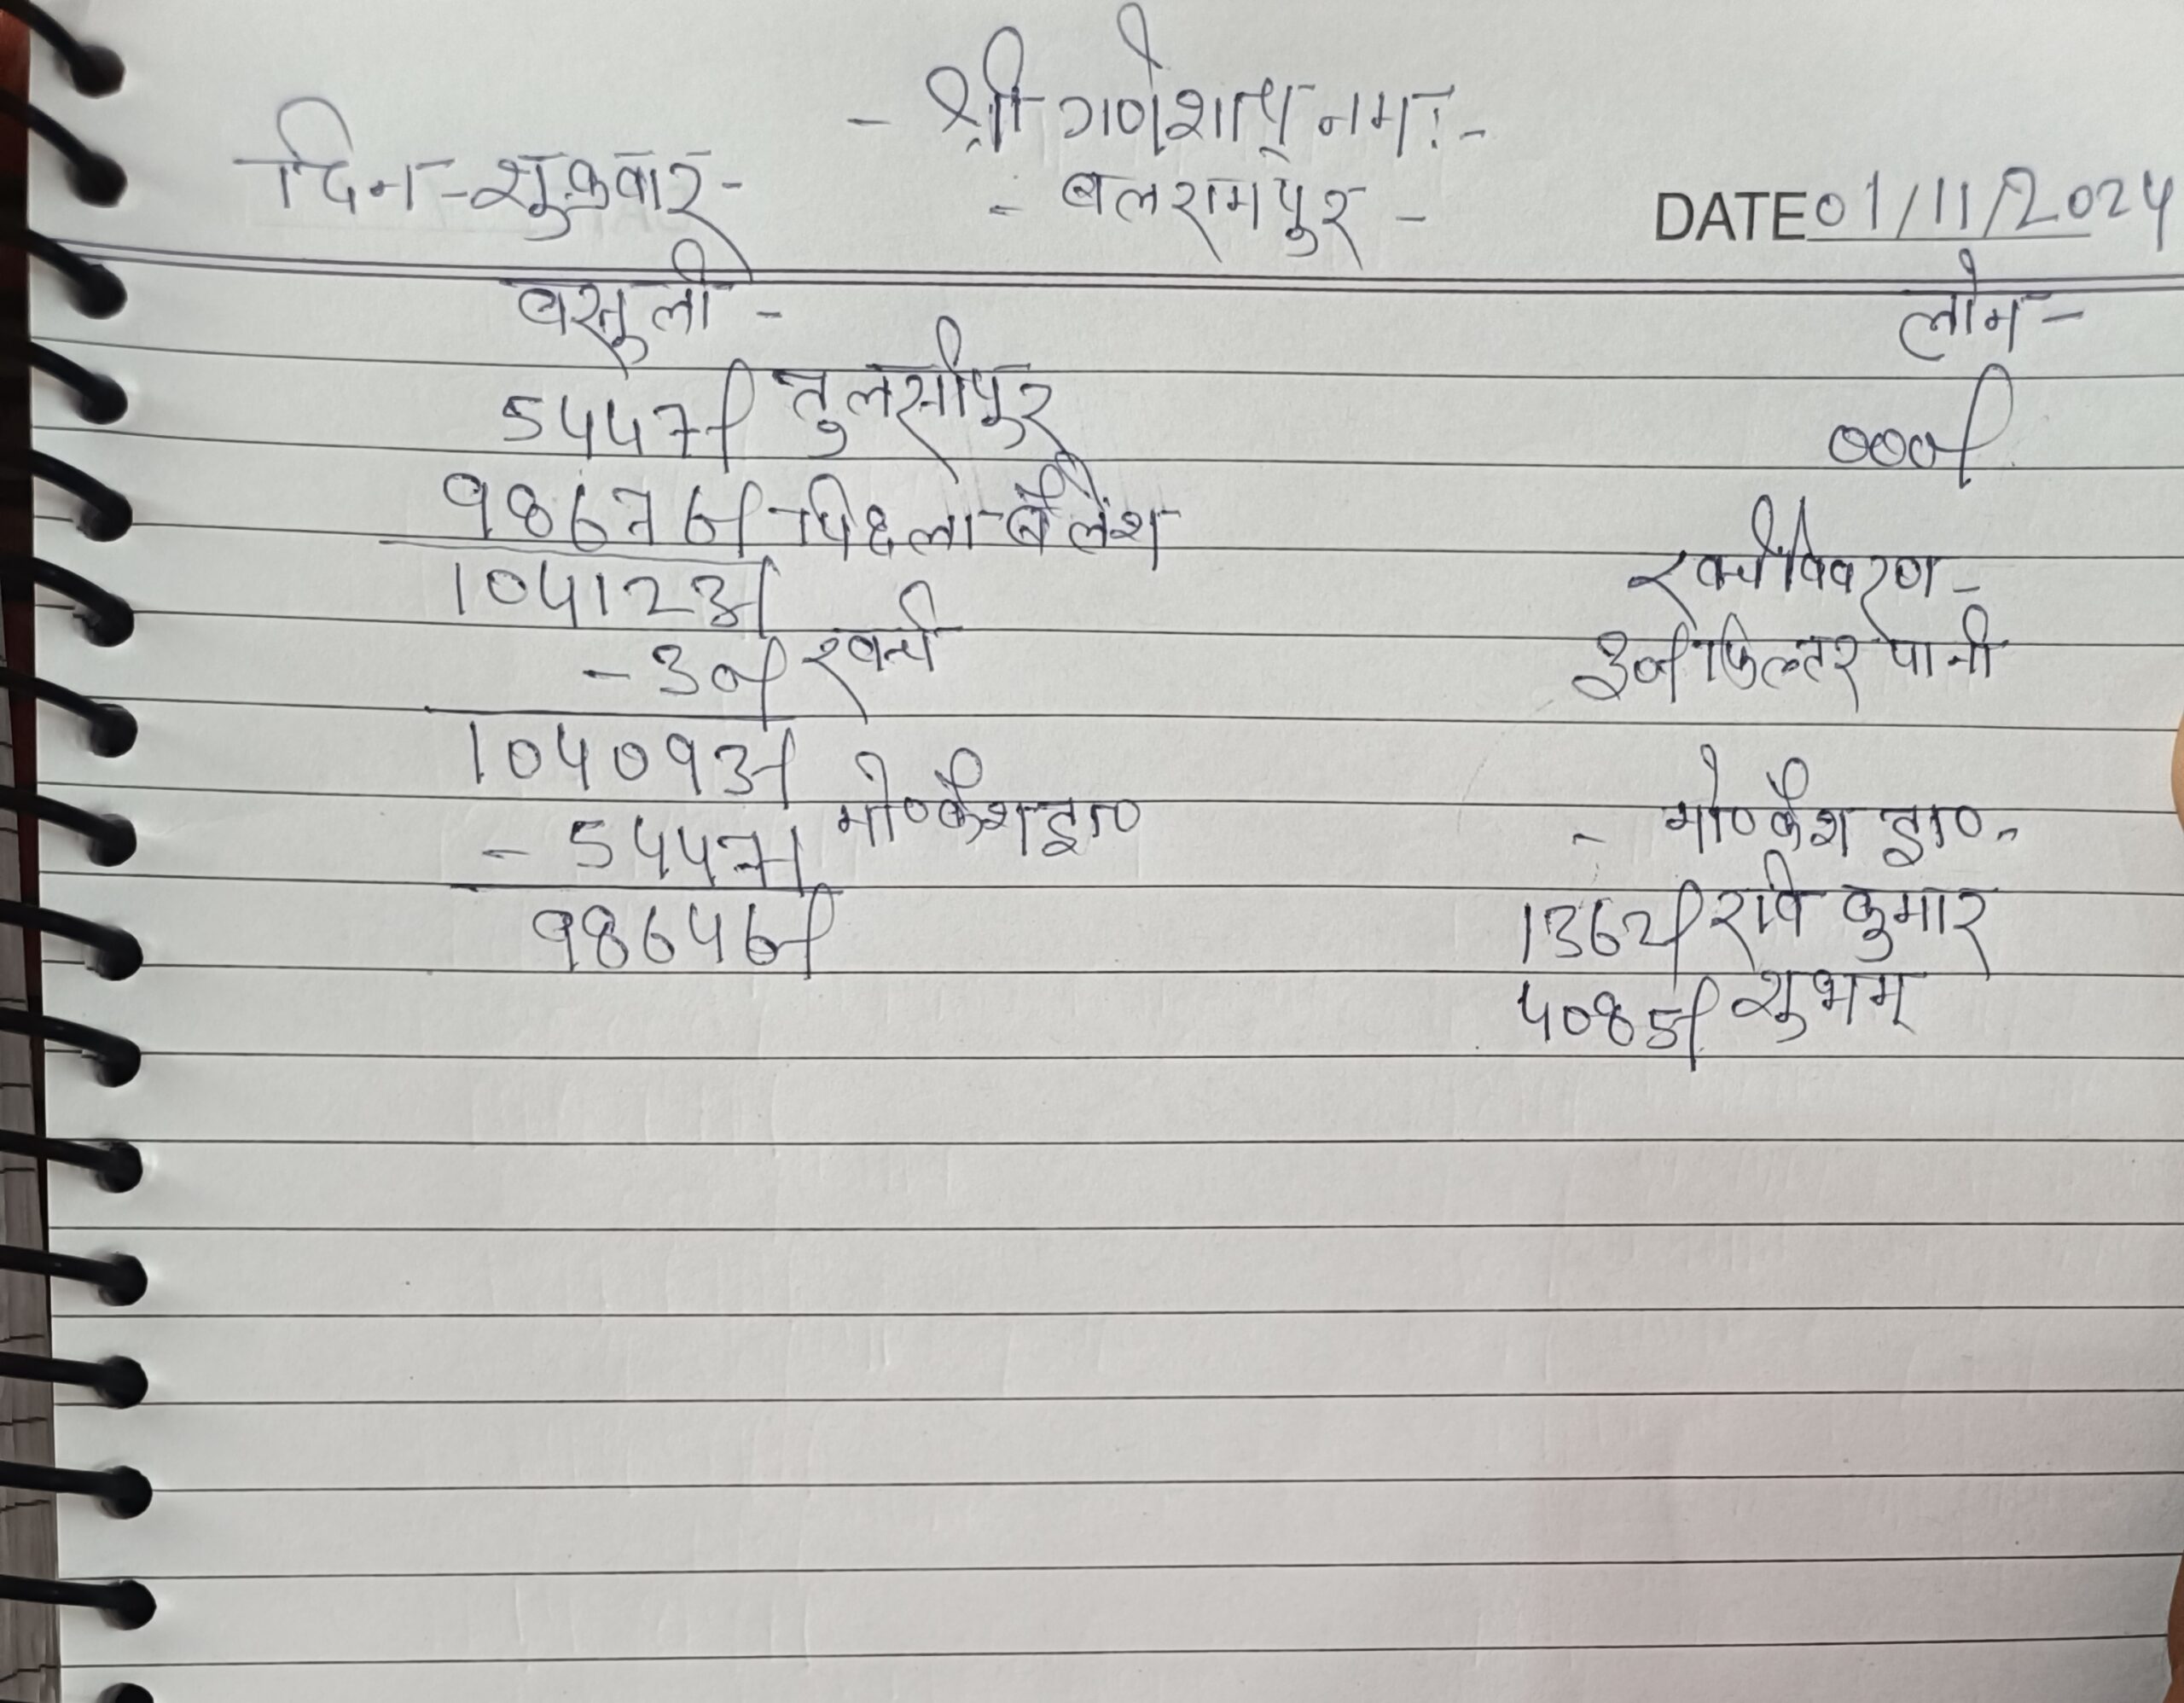 - श्री गणेशाय नमः -
दिन - शुक्रवार -
- बलरामपुर -
DATE 01/11/2024
वसुली -
5447/ तुलसीपुर
98676/ पिछला बैलेंश
104123/
- 30/ खर्च
104093/
- 5447/ मो०कैश ट्रा०
98646/
लोन -
000/
खर्च विवरण -
30/ फिल्टर पानी
- मो०कैश ट्रा० -
1362/ रवि कुमार
4085/ शुभम्